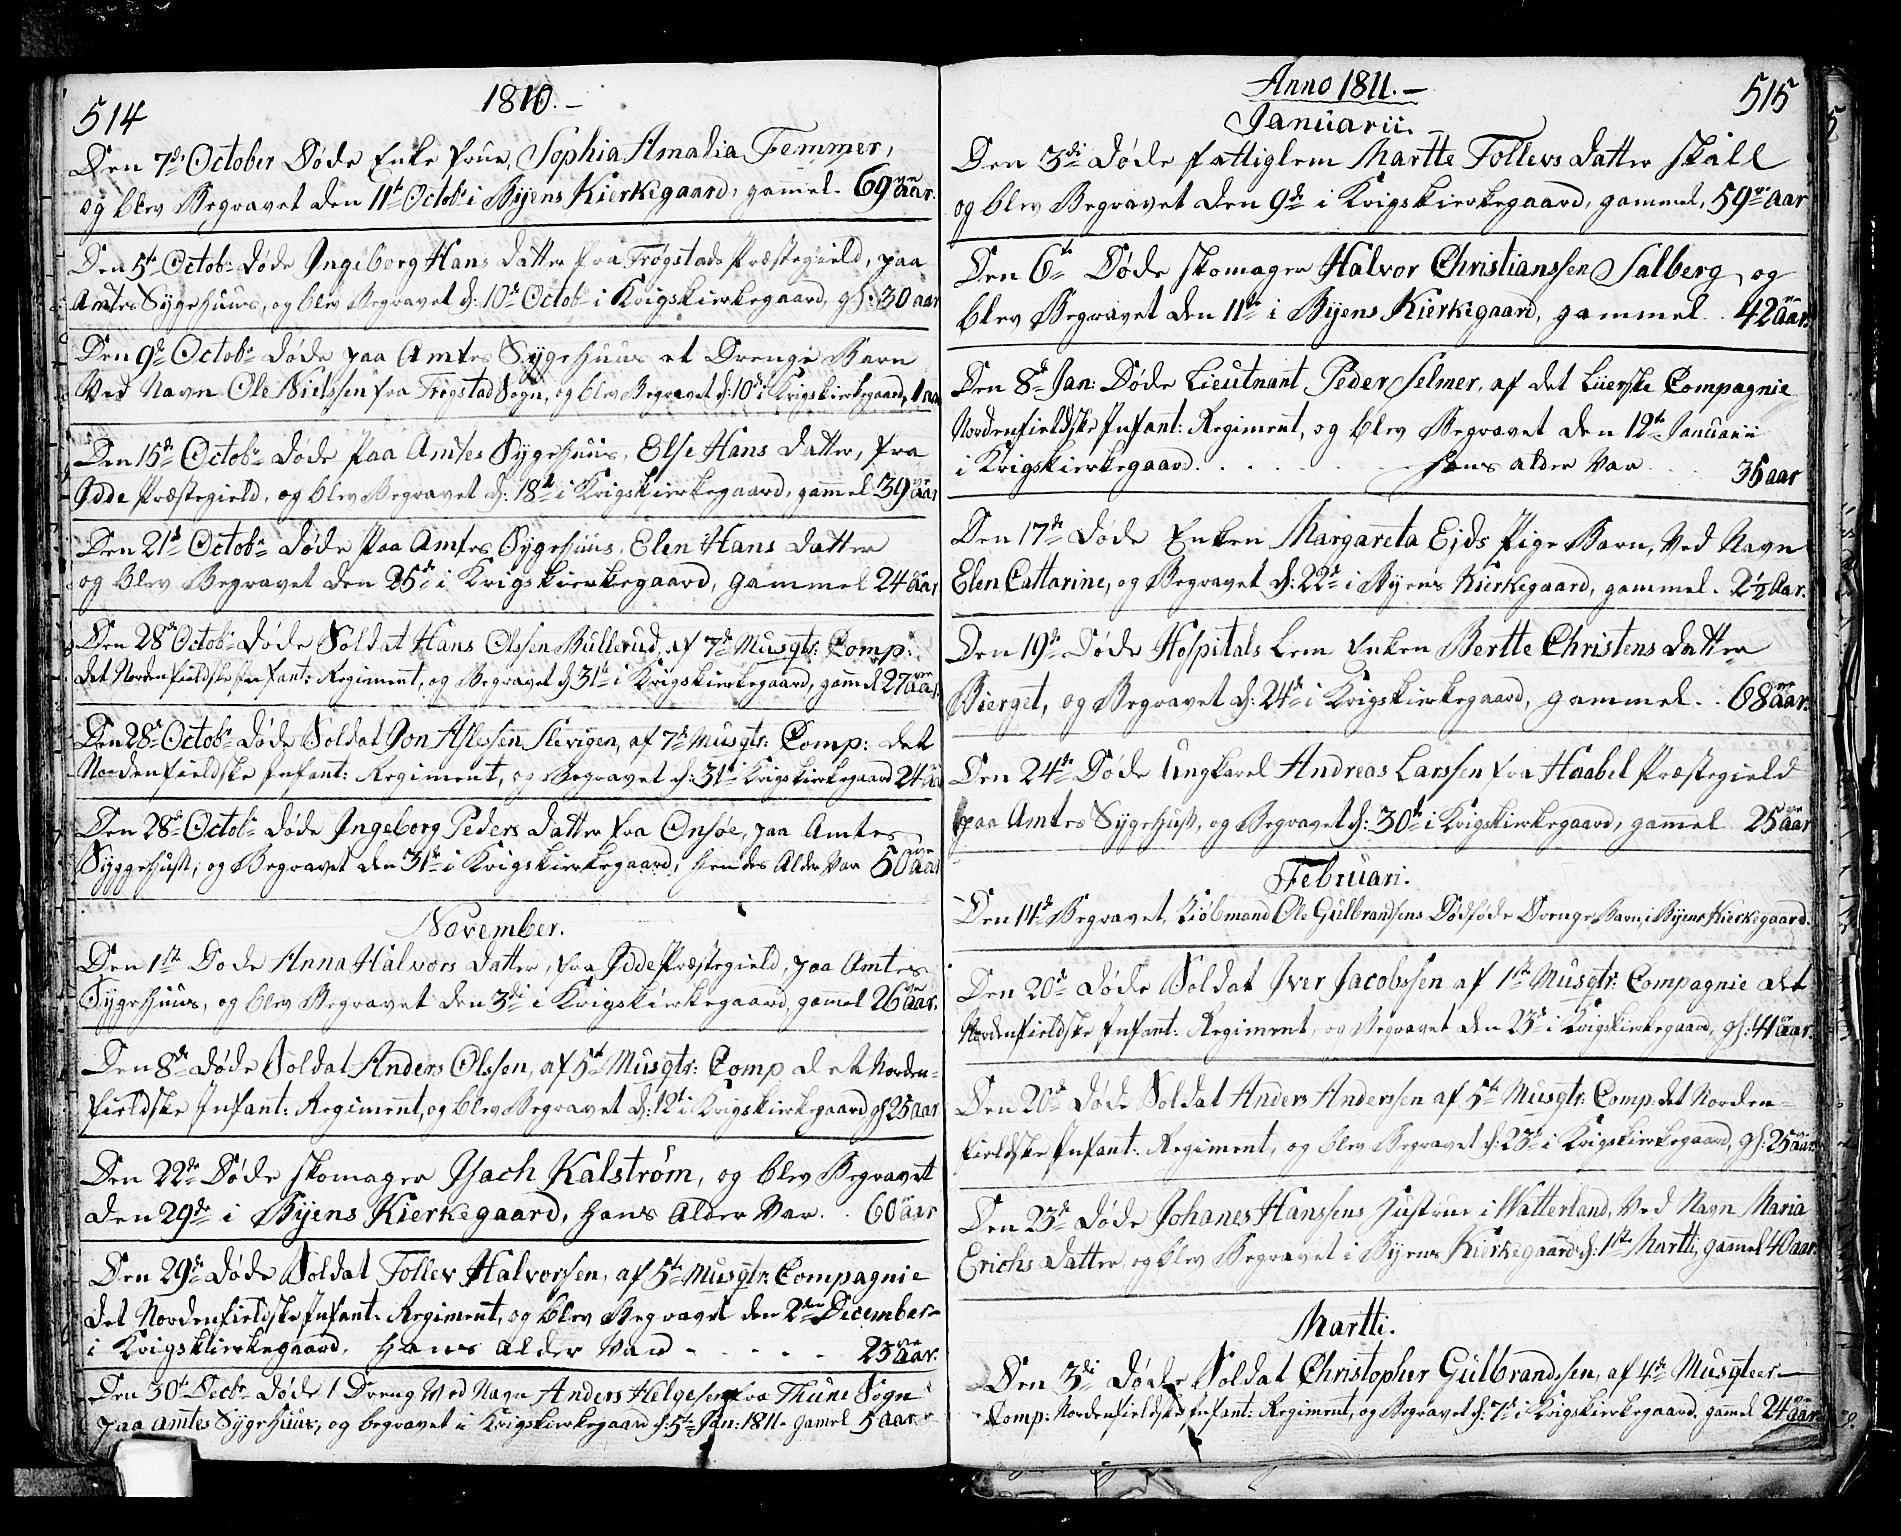 514
1810.-
Den 7de October Døde Enke frue, Sophia Amalia Femmer,
og blev Begravet den 11te Octobr i Byens Kierkegaard, gamel. 69 aar.
Den 5te Octobr døde Ingeborg Hans datter fra Trøgstads Præstegield, paa
Amtes Sygehuus, og blev Begravet d: 10de Octobr i Krigskierkegaard, gl: 30 aar
Den 9de Octobr døde paa Amtes Sygehuus et Drenge Barn
Ved Navn Ole Nielssen fra Trøgstad Sogn, og blev Begravet d: 10de i Krigskierkegaard, 1 aar
Den 15de Octobr døde Paa Amtes Sygehuus, Else Hans datter, fra
Idde Præstegield, og blev Begravet d: 18de i Krigskierkegaard, gammel 39 aar
Den 21de Octobr døde Paa Amtes Sygehuus, Elen Hans datter
og blev Begravet den 25de i Krigskierkegaard, gammel 24 aar
Den 28de Octobr døde Soldat Hans Olssen Bullerud, af 7de Musqtr: Comp:
det Nordenfieldske Infant: Regiment, og Begravet d 31te i Krigskierkegaard, gamel 27 aar
Den 28de Octobr døde Soldat Jon Aslessen Slevigen, af 7de Musqtr: Comp: det
Nordenfieldske Infant: Regiment, og Begravet d: 31te i Krigskierkegaard 24 aar
Den 28de Octobr døde Ingeborg Peders datter fra Onsøe, paa Amtes
Syggehusß, og Begravet den 31te i Krigskierkegaard, hendes Alder Var 50 aar
November.
Den 1ste Døde Anna Halvors datter, fra Idde Præstegield, paa Amtes
Sygehuus, og blev Begravet den 3di i Krigskierkegaard, gamel 26 aar.
Den 8de døde Soldat Anders Olsson, af 5te Musqtr: Comp det Norden-
fieldske Infant: Regiment, og blev Begravet d: 12te i Krigskierkegaard gl 25 aar
Den 22de Døde skomager Isach Kalstrøm, og blev Begravett
den 29de i Byens Kierkegaard, hans Alder Var. . 60 aar
Den 29de døde Soldat Tollev Halvorssen, af 5te Musqtr: Compagnie
det Nordenfieldske Infant: Regiment, og blev Begravet den 2den December
i Krigsklierkegaard, hans alder Var - - - - - 25 aar.
Den 30te Decbr døde 1 Dreng Ved Navn Anders Helgesen fra Thune Sogn
paa amtes Sygehuus, og begravet i Krigskierkegaard d: 5te Jan: 1811. gamel 5 aar
Anno 1811.-
515
Januarii.
Den 3di døde fattiglem Martte Tollevs datter Skall
og blev Begravet den 9de i Krigskierkegaard, gammel, 59 aar
Den 6te Døde skomager Halvor Christianssen Salberg, og
blev Begravet den 11te i Byens Kierkegaard, gammel. . 42 aar.
Den 8de Jan: Døde Lieutnant Peder Selmer, af det Liierske Compagnie
Nordenfieldske Infant: Regiment, og blev Begravet den 12te Januarii
i Krigskierkegaard. . . . . . . hans alder Var . . . 35 aar
Den 17de døde Enken Margareta Ejds Pige Barn, Ved Navn
Elen Cattarine, og Begravet d: 22de i Byens Kierkegaard, gammel. 2½ Aar.
Den 19de Døde Hospitals Lem Enken Bertte Christens datter
Bierget, og Begravet d: 24de i Krigskierkegaard, gammel. . 68 aar.
Den 24de Døde Ungkarel Andreas Larssen fra Haabel Præstegield
paa Amtes Sygehusß, og Begravet d: 30te i Krigskierkegaard, gamel 25 aar
Februari.
Den 14de Begravet, Kiøbmand Ole Gulbrandsens Dødføde Drenge Barn, i Byens Kierkegaard.
Den 20de døde Soldat Iver Jacobssen af 1ste Musqtr: Compagnie det
Nordenfieldske Infant: Regiment, og Begravet den 23de i Krigskierkegaard, gl: 41 aar.
Den 20de døde Soldat Anders Anderssen af 5te Musqtr: Comp: det Norden-
fieldske Infant: Regiment, og blev Begravet d: 23de i Krigskierkegaard, gl: 25 aar.
Den 23de døde Johanes Hanssens Hustrue i Watterland, Ved Navn Maria
Erichs datter, og blev Begravet i Byens Kierkegaard d: 1ste Martti, gamel 40 aar.
Martti.
Den 3di døde Soldat Christopher Gulbrandssen, af 4de Musqteer-
Comp: Nordenfieldske Infant: Regiment, og Begravet d: 7de i Krigskierkegaard, gamel 24 aar.